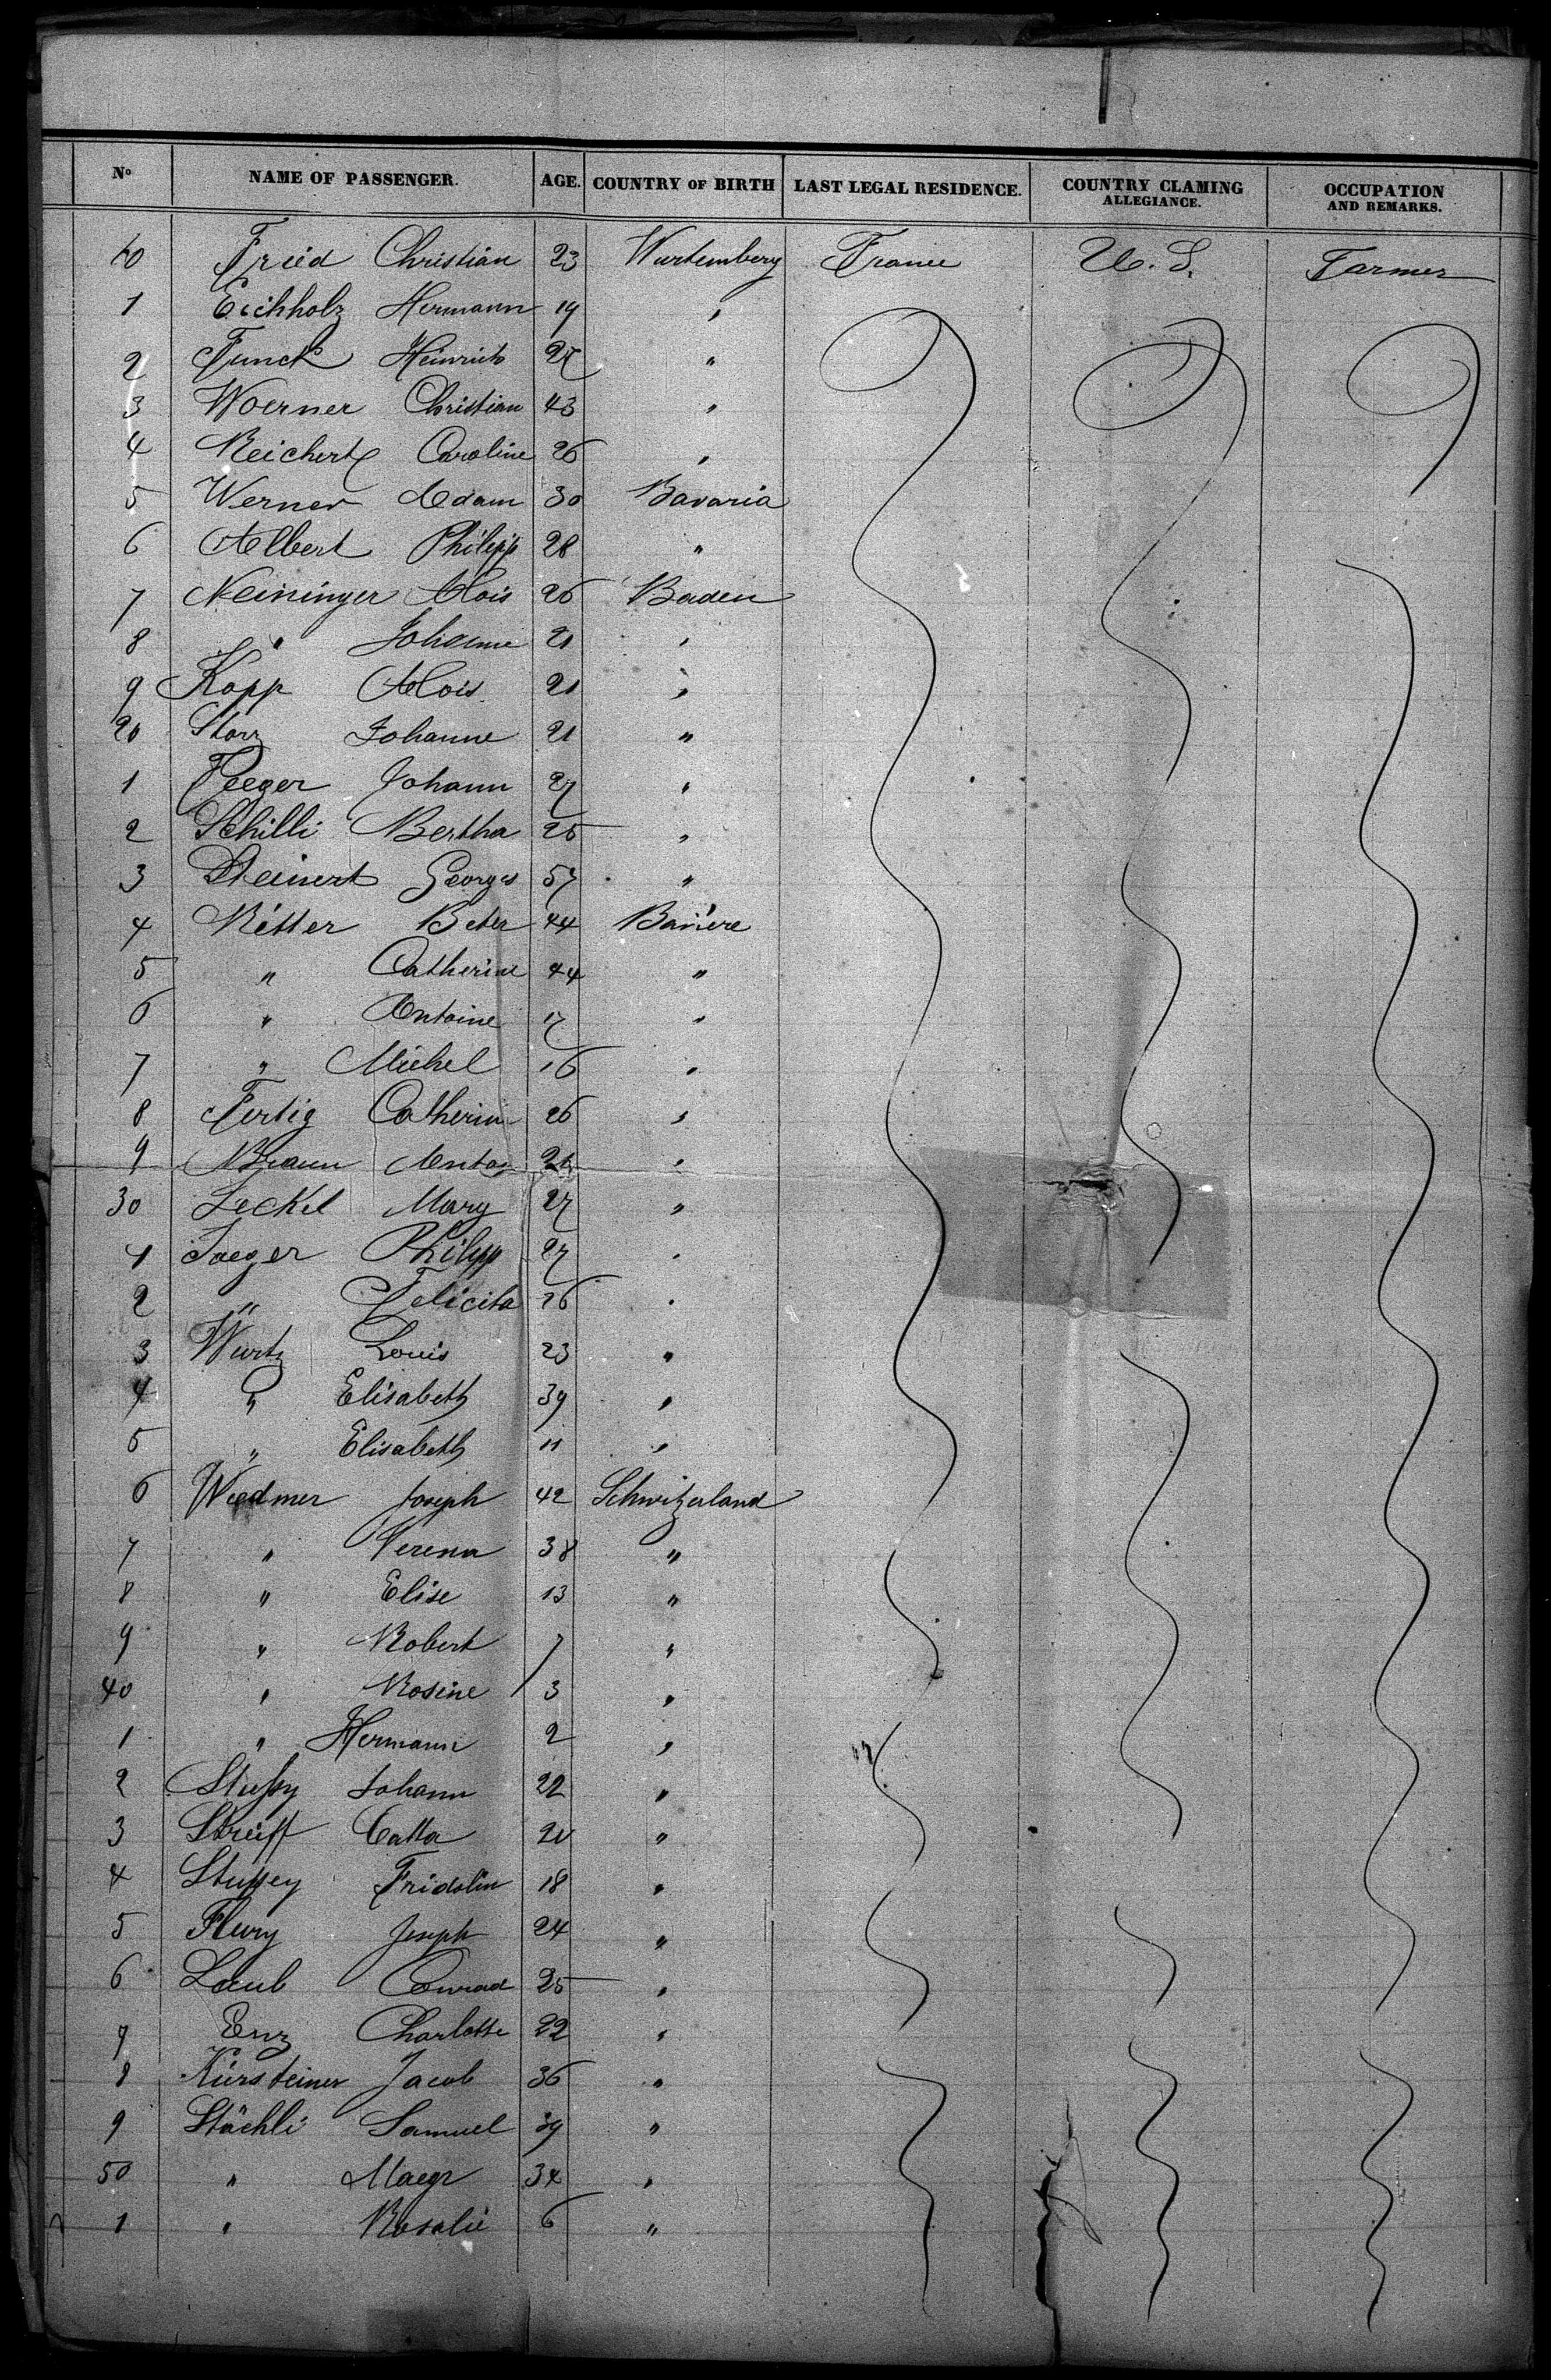 No NAME OF PASSENGER. AGE. COUNTRY OF BIRTH LAST LEGAL RESIDENCE. COUNTRY CLAMING ALLEGIANCE. OCCUPATION AND REMARKS.
10 Fried Christian 23 Wurtemberg France U. S. Farmer
1 Eichholz Hermann 19 "
2 Funck Heinrich "
3 Woerner Christian 43 "
4 Reichert Caroline 26 "
5 Werner Adam 30 Bavaria
6 Albert Philipp 28 "
7 Neininger Alois 26 Baden
8 " Johanne 21 "
9 Kopp Alois 21 "
20 Storz Johanne 21 "
1 Johann 27 "
2 Schilli Bertha 25 "
3 Steinert Georges 57 "
4 Ritter Peter 44 Baviere
5 " Catherine 44 "
6 " Antoine 17 "
7 " Michel 16 "
8 Fertig Catherine 26 "
9 Braun Anton "
30 Leckel Mary 27 "
1 Jaeger Philipp 27 "
2 " Felicita 26 "
3 Wurtz Louis 23 "
4 " Elisabeth 39 "
5 " Elisabeth 11 "
6 Wiedmer Joseph 42 Schwitzerland
7 " Verena 38 "
8 " Elise 13 "
9 " Robert 7 "
40 " Rosine 3 "
1 " Hermann 2 "
2 Stussy Johann 22 "
3 Streiff "
4 Stussey Fridolin 18 "
5 Flury Joseph 24 "
6 Laub Conrad 25 "
7 Enz Charlotte 22 "
8 Kürsteiner Jacob 36 "
9 Stächli Samuel 39 "
50 " 34 "
1 " Rosalie 6 "